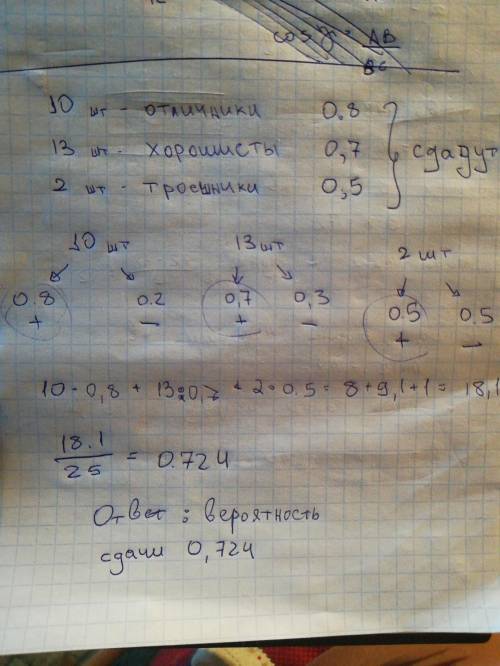 cos γ = AB
BC
10 шт - отличники 0.8
13 шт - хорошисты 0,7 сдадут
2 шт - троешники 0,5
10 шт 13 шт 2 шт
0.8 0.2 0,7 0,3 0.5 0.5
+ − + − + −
10 · 0,8 + 13 · 0,7 + 2 · 0.5 = 8 + 9,1 + 1 = 18,1
18.1
25 = 0.724
Ответ : вероятность
сдачи 0,724